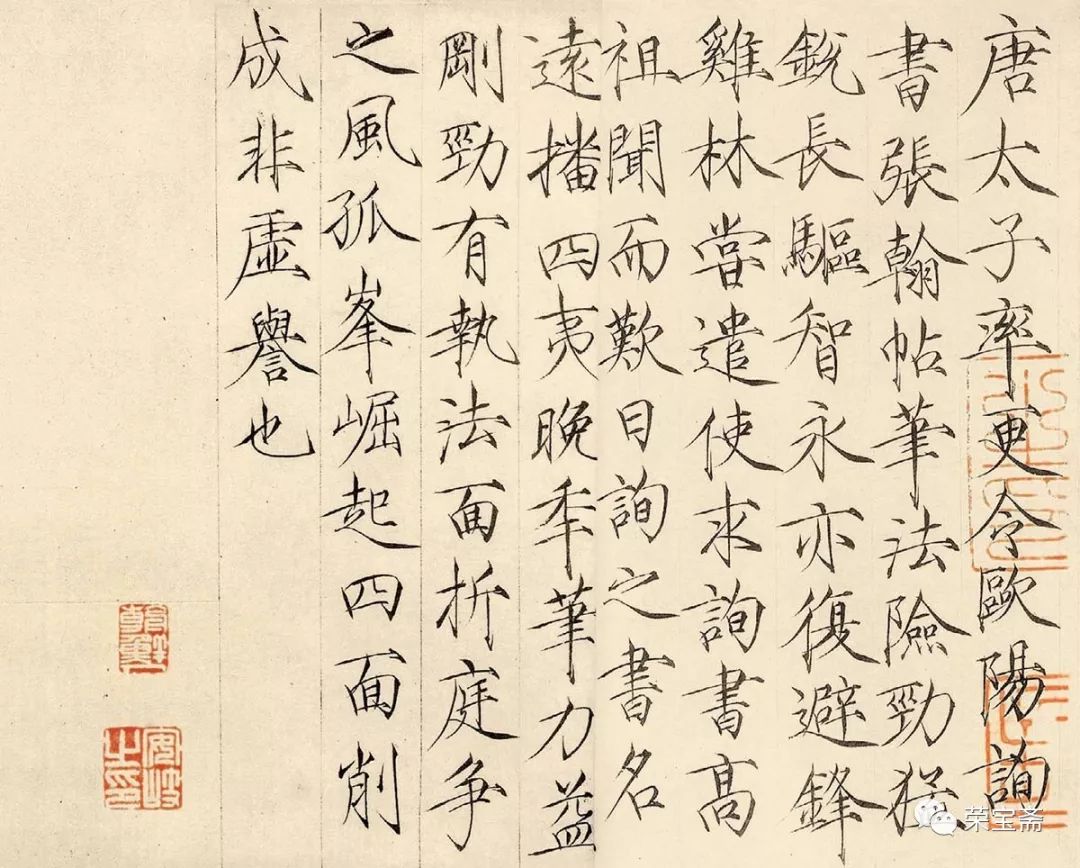 唐太子率更令歐陽詢
書張翰帖筆法險勁猛
銳長驅智永亦復避鋒
雞林嘗遣使求詢書高
祖聞而歎曰詢之書名
遠播四夷晚年筆力益
剛勁有執法面折庭爭
之風孤峯崛起四面削
成非虛譽也
荣宝斋